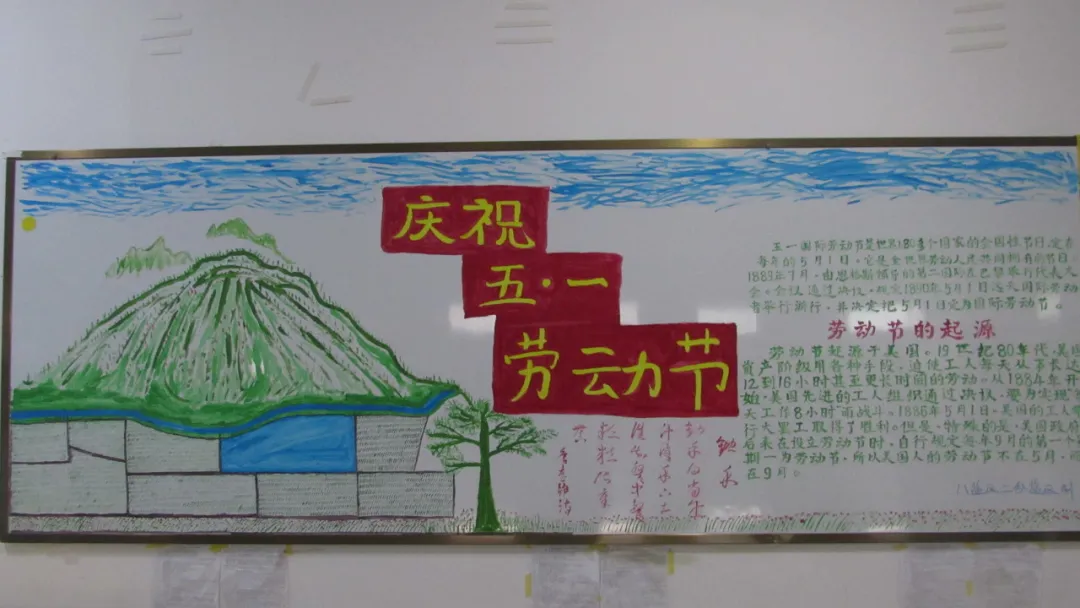 庆祝
五·一
劳动节
五一国际劳动节是世界80多个国家的全国性节日,定在
每年的5月1日。它是全世界劳动人民共同拥有的节日
1889年7月,由恩格斯领导的第二国际在巴黎举行代表大
会。会议通过决议,规定1890年5月1日
者举行游行,并决定把5月1日定为国际劳动节。
劳动节的起源
劳动节起源于美国。19世纪80年代,美国
资产阶级用各种手段,迫使工人每天从事长达
12到16小时甚至更长时间的劳动。从1884年开
始,美国先进的工人组织通过决议,要为实现
天工作8小时而战斗。1886年5月1日,美国的工人
行大罢工取得了胜利。但是,特殊的是,美国政府
后来在设立劳动节时,自行规定每年9月的第一个
期一为劳动节,所以美国人的劳动节不在5月,而
在9月。
锄禾